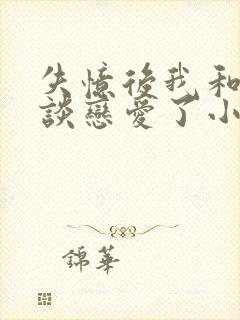 失憶後我和
談戀愛了小
錦華